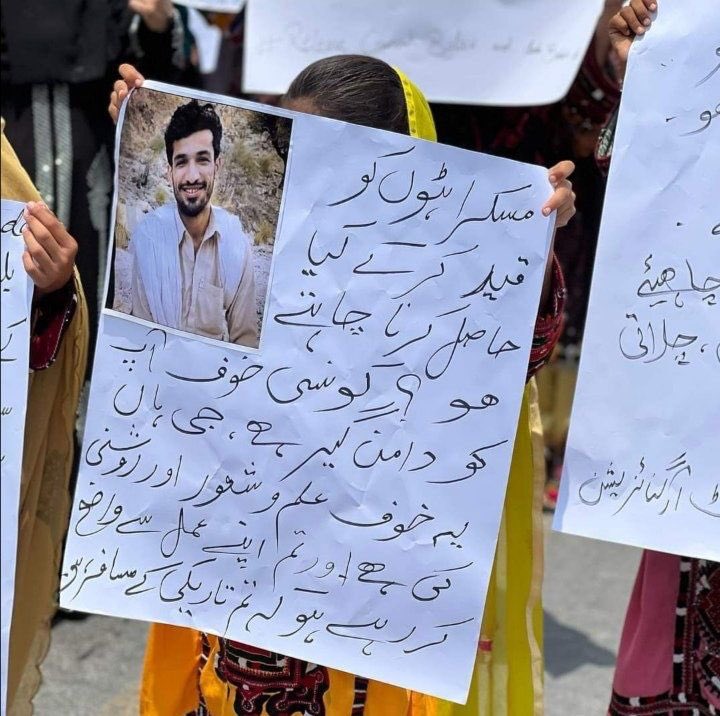 مسکراہٹوں کو
قید کرکے کیا
حاصل کرنا چاہتے
ہو ؟ کونسی خوف آپ
کو دامن گیر ہے، جی ہاں
یہ خوف علم و شعور اور روشنی
کی ہے اور تم اپنے عمل سے واضح
کر رہے ہو کہ تم تاریکی کے مسافر ہو
چاہیئے
، چلاتی
آرگنائزیشن